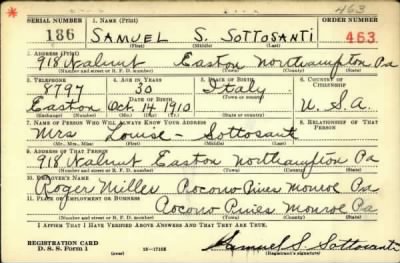 463
SERIAL NUMBER 1. NAME (Print) ORDER NUMBER
186 SAMUEL S. SOTTOSANTI 463
(First) (Middle) (Last)
2. ADDRESS (Print)
918 Walnut Easton Northampton Pa
(Number and street or R. F. D. number) (Town) (County) (State)
3. TELEPHONE 4. AGE IN YEARS 5. PLACE OF BIRTH 6. COUNTRY OF CITIZENSHIP
8797 30 Italy
DATE OF BIRTH (Town or county)
Easton Oct. 14 1910 U.S.A.
(Exchange) (Number) (Mo.) (Day) (Yr.) (State or country)
7. NAME OF PERSON WHO WILL ALWAYS KNOW YOUR ADDRESS 8. RELATIONSHIP OF THAT PERSON
Mrs Louise - Sottosanti
(Mr., Mrs., Miss) (First) (Middle) (Last)
9. ADDRESS OF THAT PERSON
918 Walnut Easton Northampton Pa
(Number and street or R. F. D. number) (Town) (County) (State)
10. EMPLOYER'S NAME
Roger Miller Pocono Pines Monroe Pa
11. PLACE OF EMPLOYMENT OR BUSINESS
Pocono Pines Monroe Pa
(Number and street or R. F. D. number) (Town) (County) (State)
I AFFIRM THAT I HAVE VERIFIED ABOVE ANSWERS AND THAT THEY ARE TRUE.
REGISTRATION CARD
D. S. S. Form 1 (over) 16—17105 Samuel S. Sottosanti
(Registrant's signature)